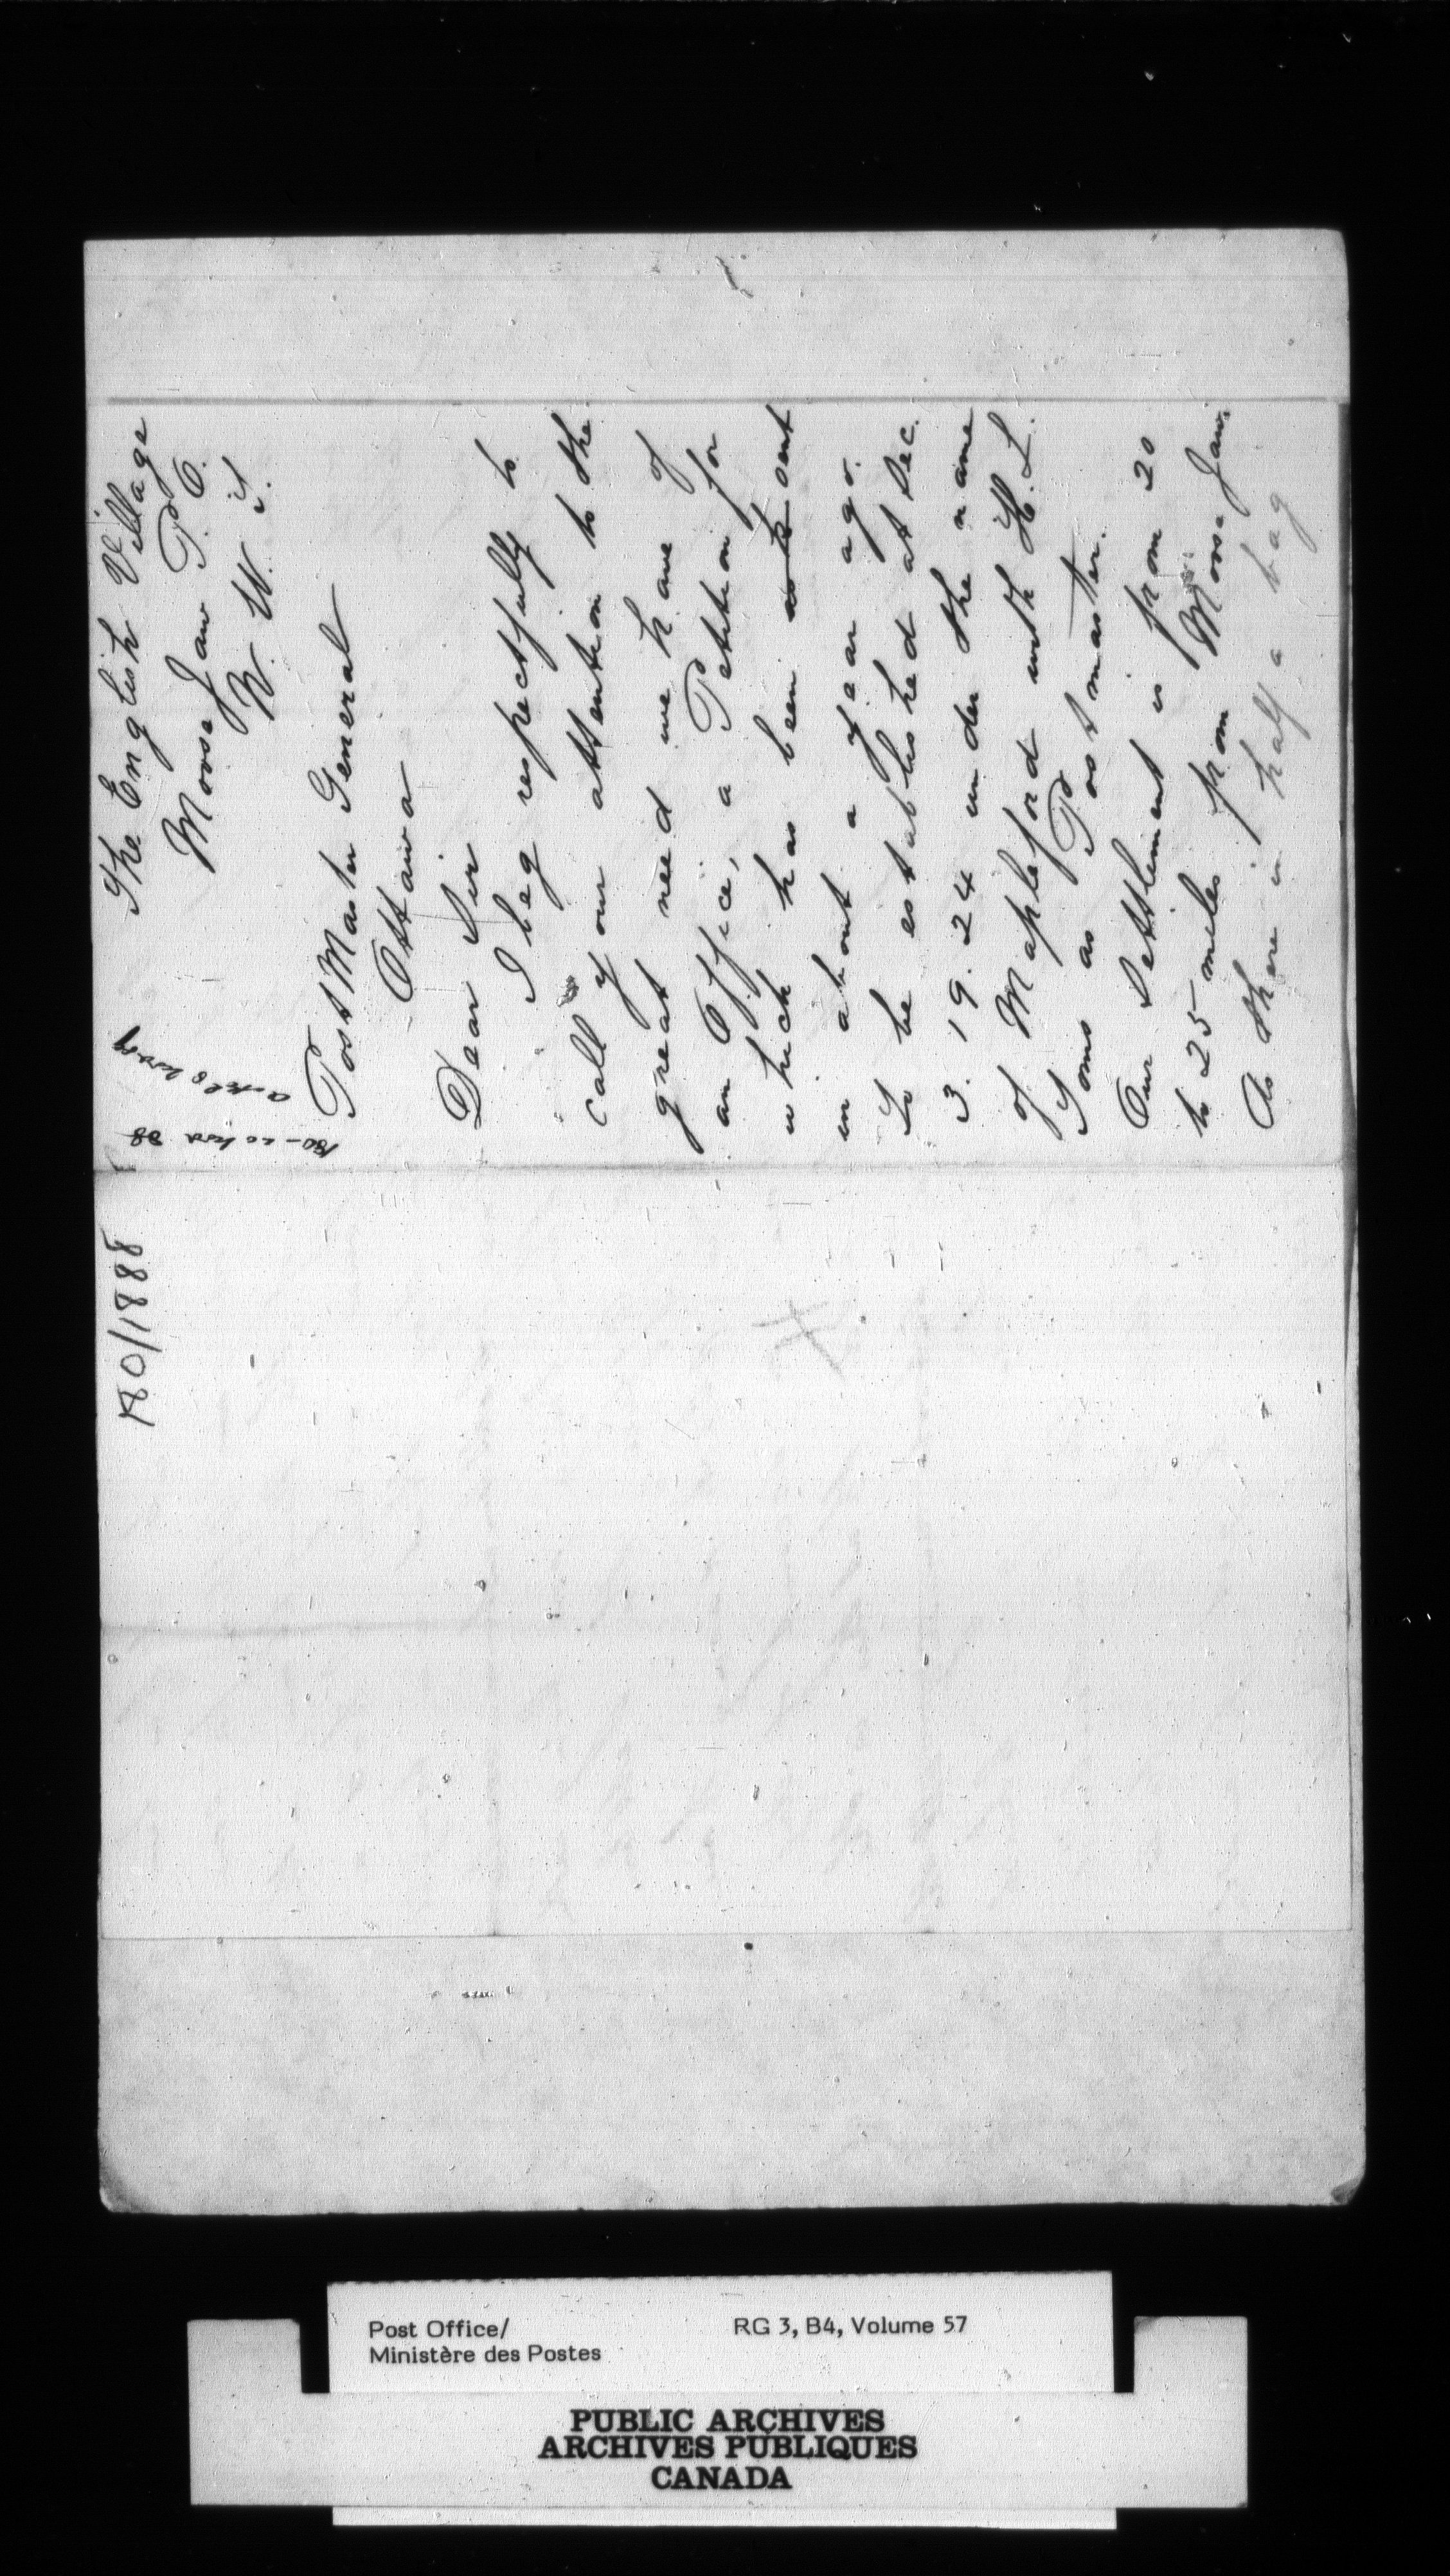 180/1888
The English Village
Moose Jaw P. O.
N. W. T.
PostMaster General
Ottawa
Dear Sir
I beg respectfully to
call your attention to the
great need we have of
an Office, a Petition for
which has been sent
in about a year ago.
To be established at Sec.
3. 19. 24 under the name
of Mapleford with H. L.
Yoms as Postmaster.
Our Settlement is from 20
to 25 miles from Moose Jaw.
As there is half a bag
Post Office/
Ministère des Postes
RG 3, B4, Volume 57
PUBLIC ARCHIVES
ARCHIVES PUBLIQUES
CANADA